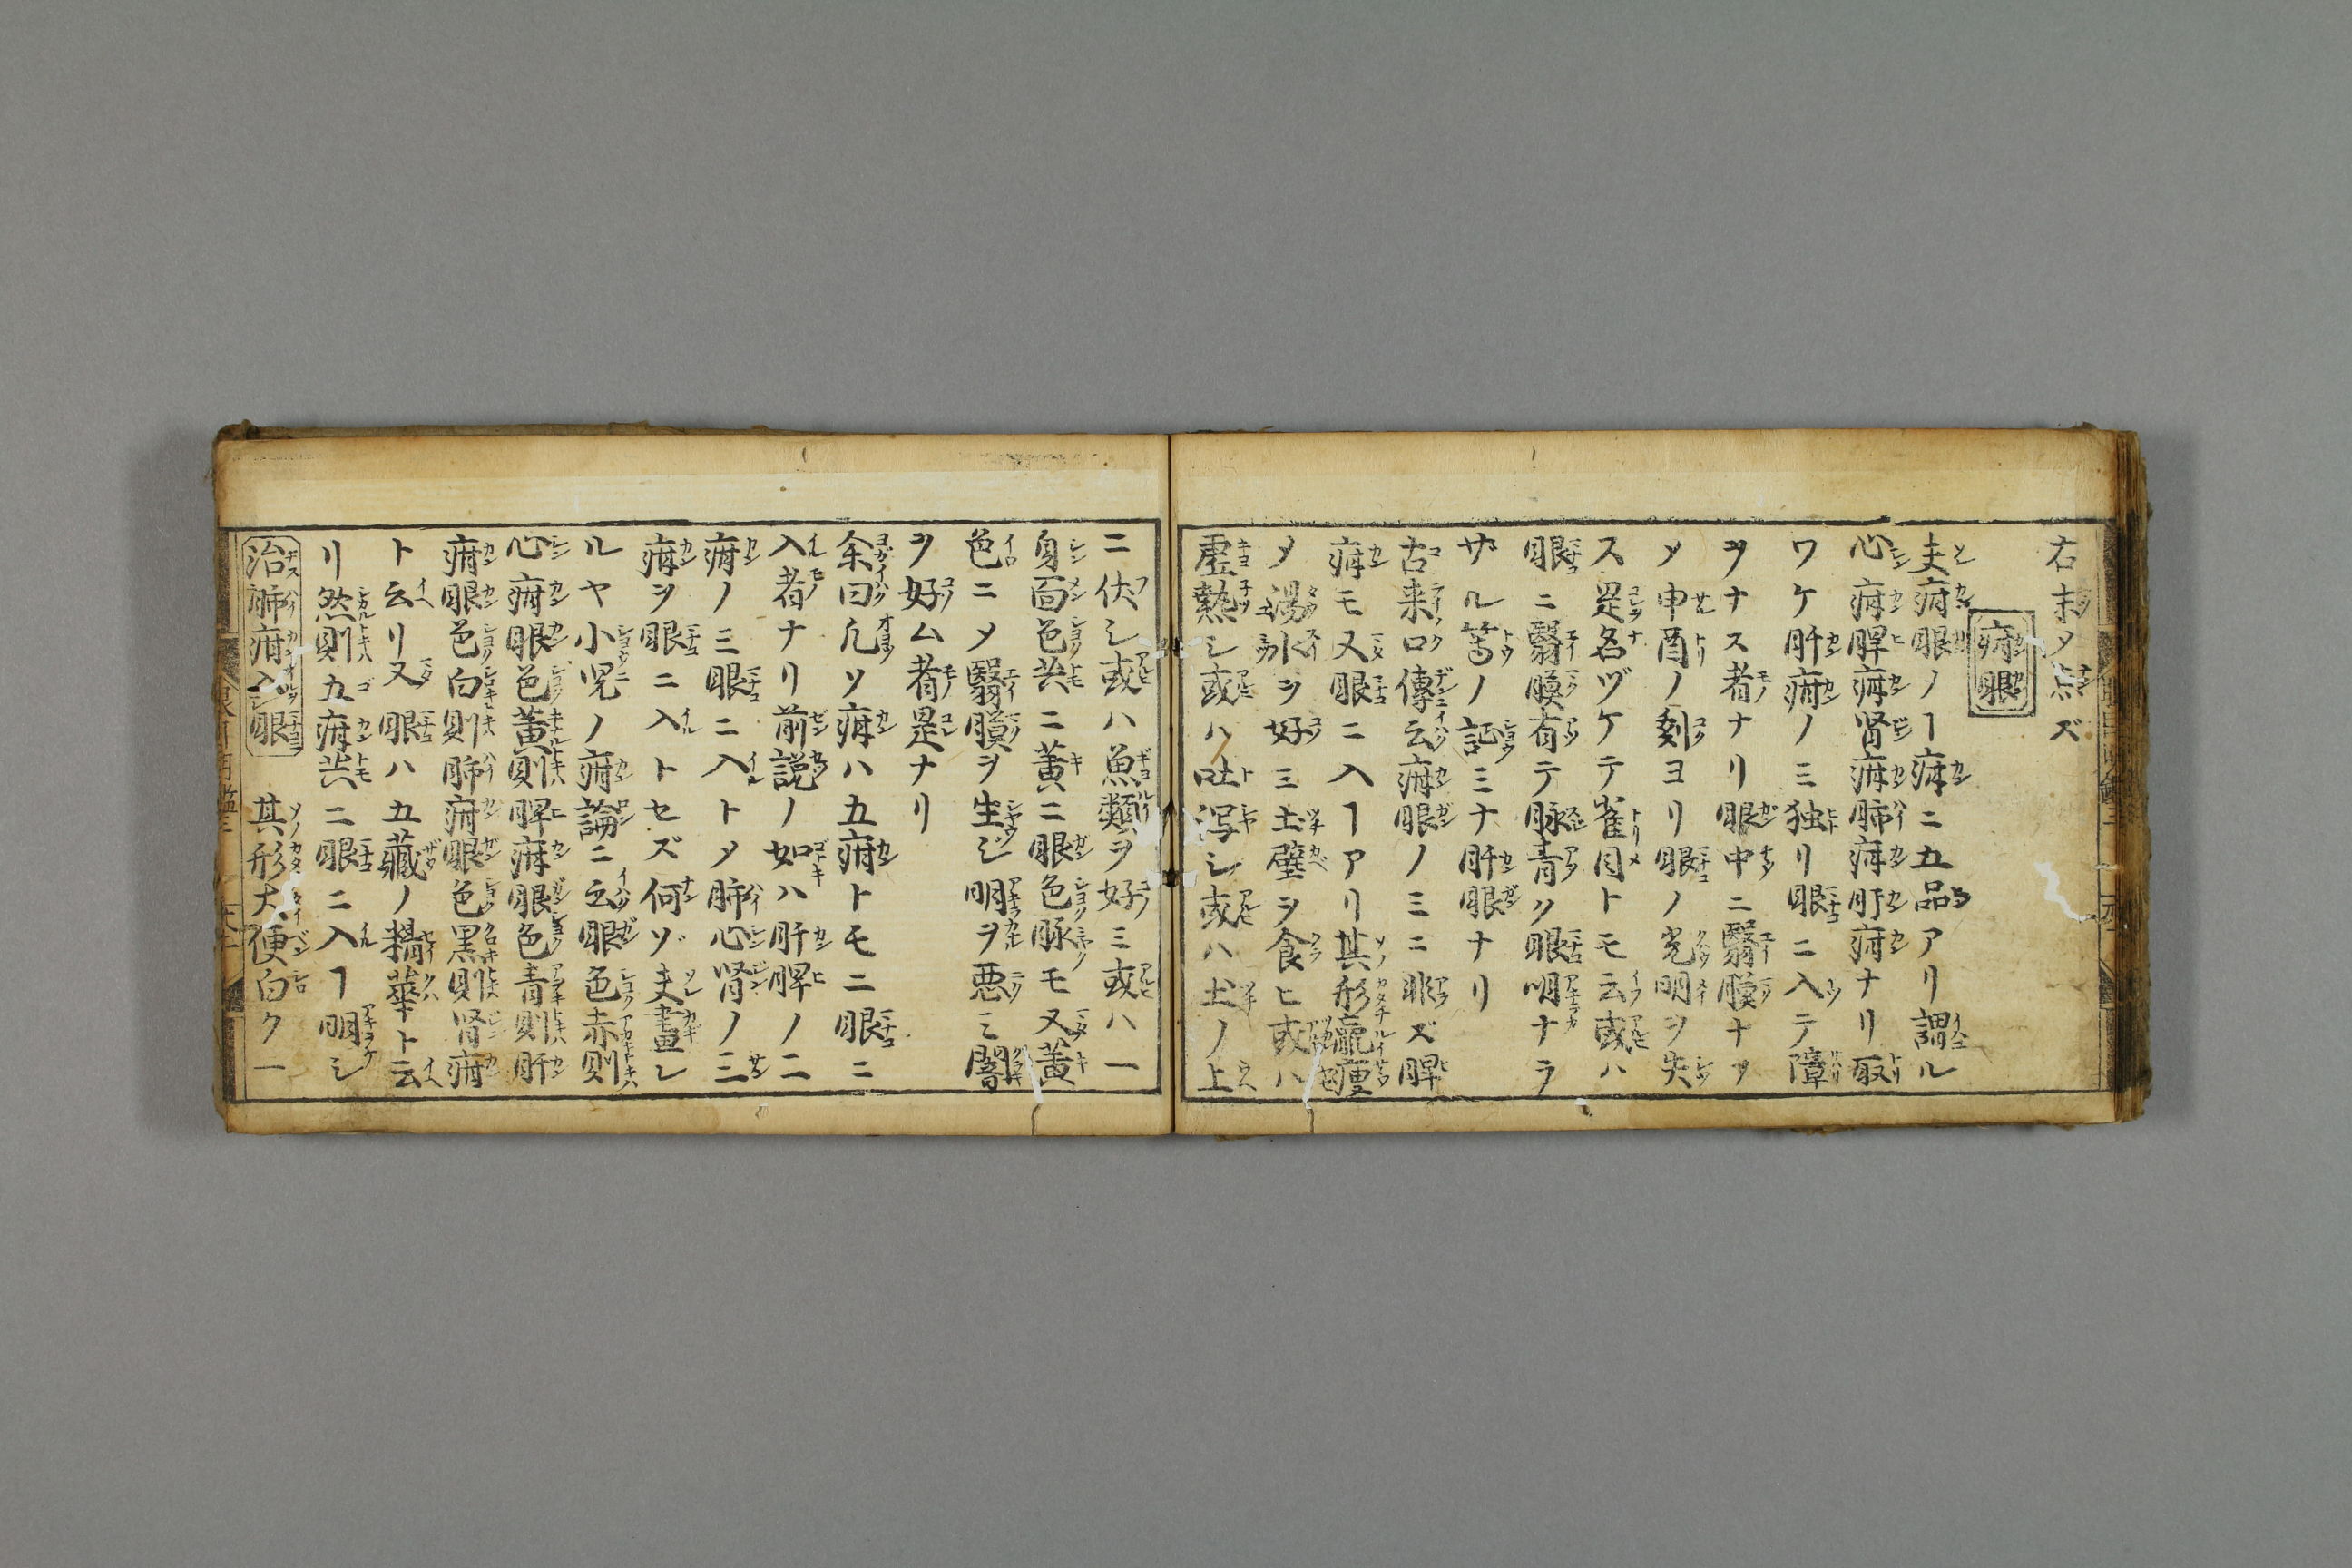 右末メ点ズ
疳眼
夫疳眼ノヿ疳ニ五品アリ謂ル
心疳脾疳腎疳肺疳肝疳ナリ取
ワケ肝疳ノミ独リ眼ニ入テ障
ヲナス者ナリ眼中ニ翳膜ナツ
メ申酉ノ刻ヨリ眼ノ光明ヲ失
ス是名ヅケテ雀目トモ云或ハ
眼ニ翳膜有テ脉青ク眼明ナラ
サル等ノ証ミナ肝眼ナリ
古来口傳云疳眼ノミニ非ズ脾
疳モ又眼ニ入ヿアリ其形羸痩
メ湯水ヲ好ミ土壁ヲ食ヒ或ハ
虚熱シ或ハ吐瀉シ或ハ土ノ上
ニ伏シ或ハ魚類ヲ好ミ或ハ一
身面色共ニ黄ニ眼色脉モ又黄
色ニメ翳膜ヲ生シ明ヲ悪ミ闇
ヲ好ム者是ナリ
余曰凡ソ疳ハ五疳トモニ眼ニ
入者ナリ前説ノ如ハ肝脾ノ二
疳ノミ眼ニ入トメ肺心腎ノ三
疳ヲ眼ニ入トセズ何ゾ夫畫レ
ルヤ小児ノ疳論ニ云眼色赤則
心疳眼色黄則脾疳眼色青則肝
疳眼色白則肺疳眼色黒則腎疳
ト云リ又眼ハ五藏ノ精華ト云
リ然則五疳共ニ眼ニ入ヿ明シ
治肺疳入眼 其形大便白ク一